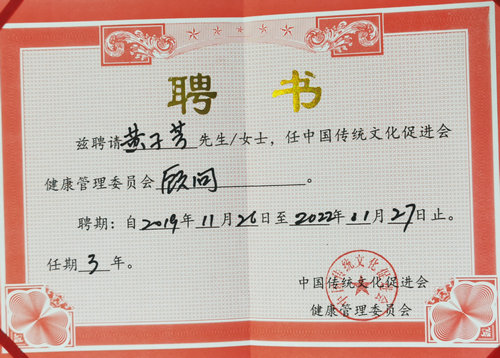 聘书
兹聘请黄子芳先生/女士，任中国传统文化促进会
健康管理委员会顾问。
聘期：自2019年11月26日至2022年01月27日止。
任期3年。
中国传统文化促进会
健康管理委员会